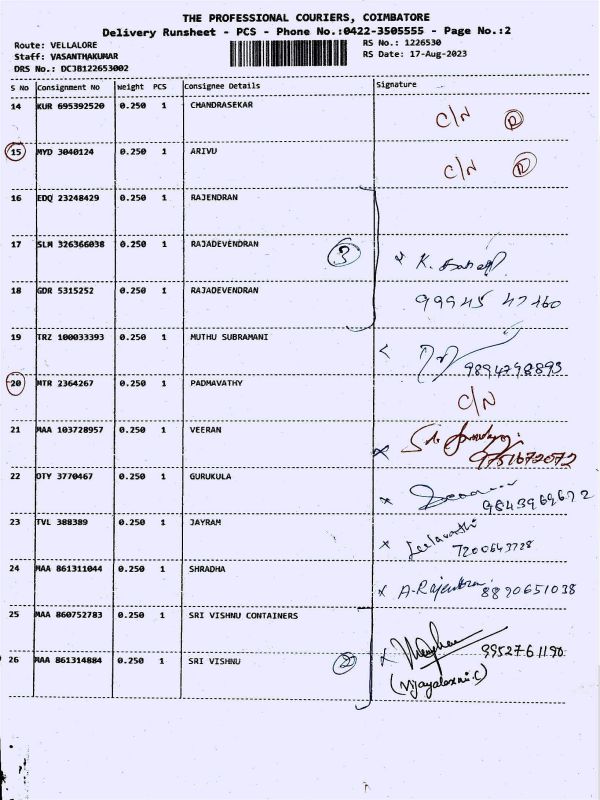 THE PROFESSIONAL COURIERS, COIMBATORE
Delivery Runsheet - PCS - Phone No.:0422-3505555 - Page No.:2
Route: VELLALORE
RS No.: 1226530
Staff: VASANTHAKUMAR
RS Date: 17-Aug-2023
DRS No.: DCJB122653002
S No Consignment No Weight PCS Consignee Details Signature
14 KUR 695392520 0.250 1 CHANDRASEKAR C/N R
15 MYD 3040124 0.250 1 ARIVU C/N R
16 EDQ 23248429 0.250 1 RAJENDRAN
17 SLM 326366038 0.250 1 RAJADEVENDRAN 3 K.
18 GDR 5315252 0.250 1 RAJADEVENDRAN 99945 47460
19 TRZ 100033393 0.250 1 MUTHU SUBRAMANI 9894798893
20 MTR 2364267 0.250 1 PADMAVATHY C/N
21 MAA 103728957 0.250 1 VEERAN 9751672072
22 OTY 3770467 0.250 1 GURUKULA 9843969672
23 TVL 388389 0.250 1 JAYRAM Leelavathi 7200643728
24 MAA 861311044 0.250 1 SHRADHA A-Rajendra 8870651038
25 MAA 860752783 0.250 1 SRI VISHNU CONTAINERS 9952761190
26 MAA 861314884 0.250 1 SRI VISHNU 2 (Vijayalaxmi.C)